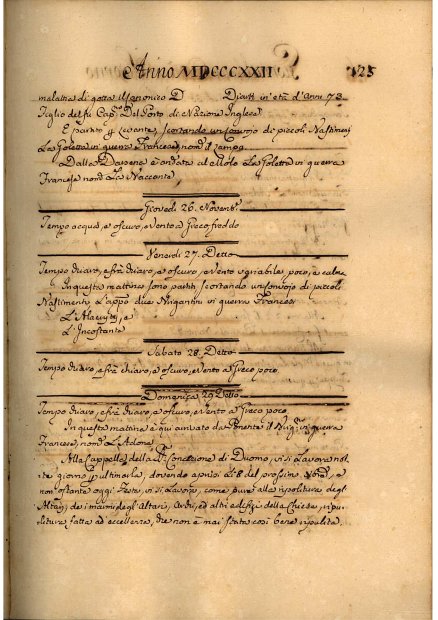 Anno MDCCCXXII 125
malattia di gotta il Canonico D Diauti in età d'Anni 73
Figlio del fù Capⁿ. Del Porto di Nazione Inglese
E partito p Levante, scortando un convojo di piccoli Bastimenti
La Goletta in guerra Francese, nomª. il
Dalla Darsena è andata al Molo La Goletta in guerra
Francese nomª. La
Giovedì 26. Novembʳ.
Tempo acqua, e oscuro, e Vento a Greco freddo
Venerdì 27. Detto
Tempo chiaro, e frà chiaro, e oscuro, e Vento variabile, poco, e calma
In questa mattina sono partiti, scortando un convojo di piccoli
Bastimenti, L'appò due Brigantini in guerra Francesi
L'Alacrity, e
L'Incostante
Sabato 28. Detto
Tempo chiaro, e frà chiaro, e oscuro, e Vento a Greco poco.
Domenica 29 Detto
Tempo chiaro, e frà chiaro, e oscuro, e Vento a Greco poco.
In questa mattina è quì arrivato da Ponente il Brigⁿ. in guerra
Francese, nomº. L'Adone
Alla Cappella della Concezione di Duomo, vi si Lavora not
te giorno p ultimarla, dovendo aprirsi li 8 del prossimo, e
non ostante oggi Festa, vi si Lavora, come pure alla ripolitura degl'
Altari, de i marmi degl'Altari, Archi, ed altri edifizj della Chiesa, ripu
litura fatta ad eccellenza, che non è mai stata così bene ripulita.